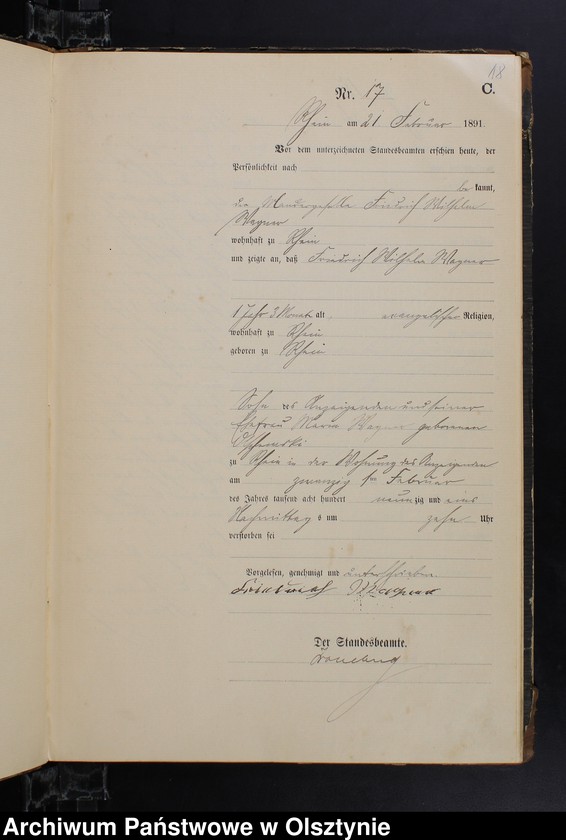 18
C.
Nr. 17
Rhein am 21. Februar 1891.
Vor dem unterzeichneten Standesbeamten erschien heute, der
Persönlichkeit nach
bekannt,
der Friedrich Wilhelm
Wagner
wohnhaft zu Rhein
und zeigte an, daß Friedrich Wilhelm Wagner
1 Jahr 3 Monat alt evangelischer Religion,
wohnhaft zu Rhein
geboren zu Rhein
Sohn des Anzeigenden und seiner
Ehefrau Maria Wagner geborenen
zu Rhein in der Wohnung des Anzeigenden
am zwanzig Februar
des Jahres tausend acht hundert neunzig und eins
Nachmittags um zehn Uhr
verstorben sei
Vorgelesen, genehmigt und unterschrieben
Friedrich Wagner
Der Standesbeamte.
Archiwum Państwowe w Olsztynie